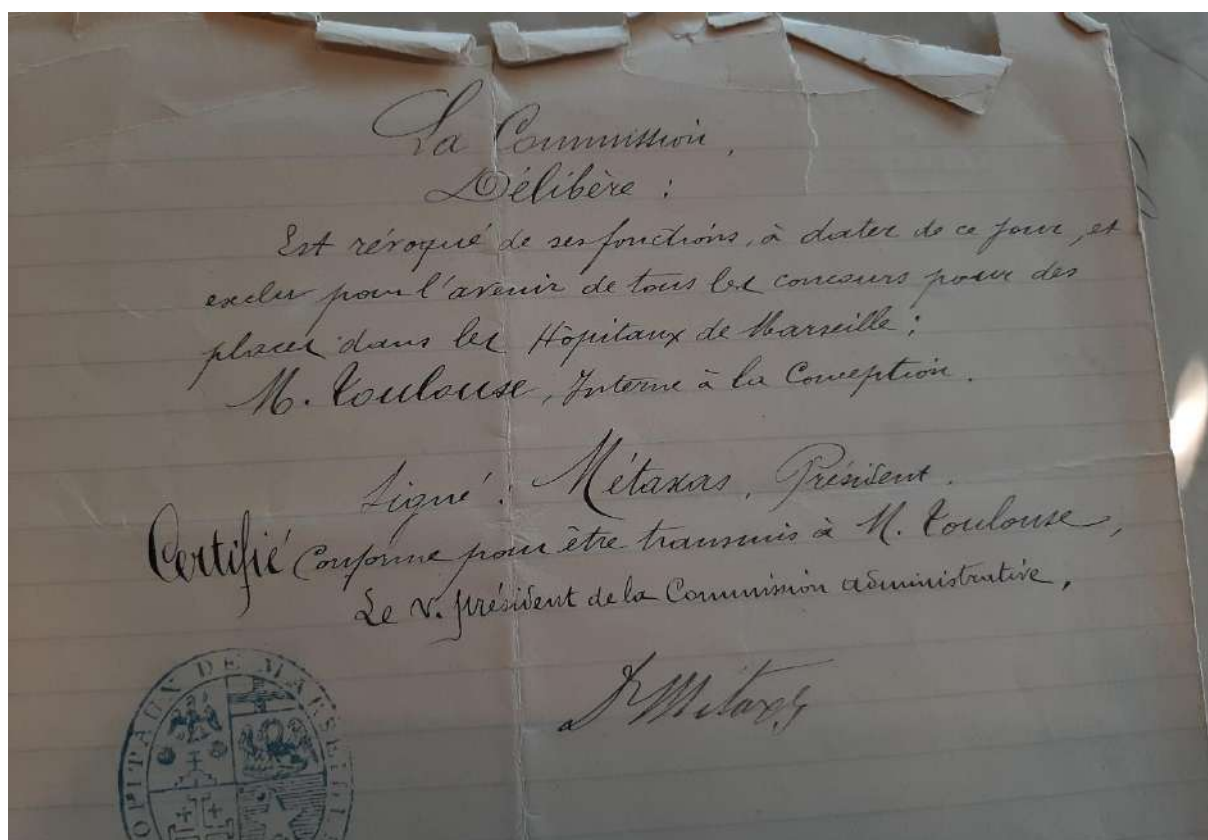 La Commission,
Délibère :
Est révoqué de ses fonctions, à dater de ce jour, et
exclu pour l'avenir de tous les concours pour des
places dans les Hôpitaux de Marseille ;
M. Toulouse, Interne à la Conception.
Signé : Métaxas, Président.
Certifié Conforme pour être transmis à M. Toulouse,
Le V. président de la Commission administrative,
Dr Métaxas
HOPITAUX DE MARSEILL